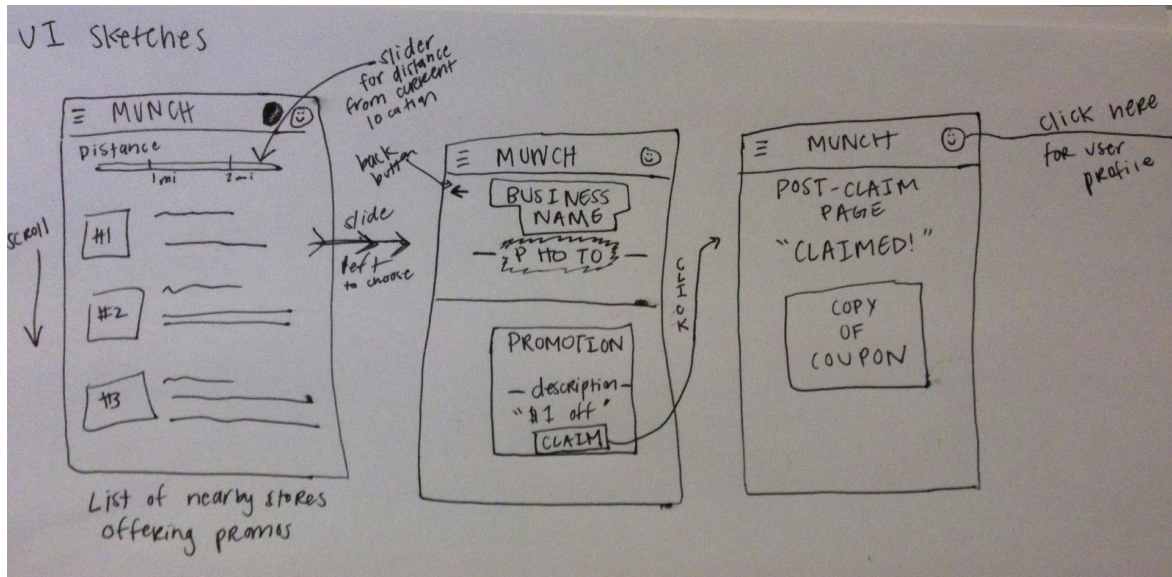 UI Sketches
slider
for distance
from current
location
MUNCH
Distance
1 mi 2 mi
SCROLL
#1
#2
#3
List of nearby stores
offering promos
slide
left
to choose
back
button
MUNCH
BUSINESS
NAME
PHOTO
PROMOTION
- description -
"$1 off"
CLAIM
CLICK
MUNCH
POST-CLAIM
PAGE
"CLAIMED!"
COPY
OF
COUPON
click here
for user
profile